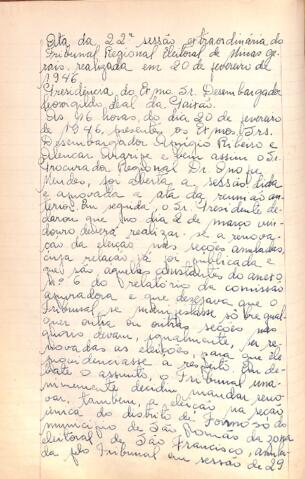 Ata da 22ª sessão extraordinária do
Tribunal Regional Eleitoral de Minas Ge-
rais, realizada em 20 de fevereiro de
1946.
Presidência do Exmo. Sr. Desembargador
Leovigildo Leal da Paixão.
Às 16 horas do dia 20 de fevereiro
de 1946, presentes os Exmos. Srs.
Desembargador Amilcar Ribeiro e
Alencar Araripe e bem assim o Sr.
Procurador Regional Dr. Onofre
Mendes, foi aberta a sessão, lida
e aprovada a ata da reunião an-
terior. Em seguida, o Sr. Presidente de-
clarou que no dia 2 de março vin-
douro deverá realizar-se a renova-
ção da eleição nas seções anuladas,
cuja relação já foi publicada e
que são aquelas constantes do anexo
nº 6 do relatório da comissão
apuradora e que desejava que o
Tribunal se manifestasse sobre qual-
quer outra ou outras seções nas
quais devam, igualmente, ser re-
novadas as eleições, para que ele
providenciasse a respeito. Em de-
bate o assunto, o Tribunal una-
nimemente decidiu mandar reno-
var, também, a eleição na seção
única do distrito de Formoso do
município de São Romão da zona
eleitoral de São Francisco, anula-
da pelo Tribunal em sessão de 29